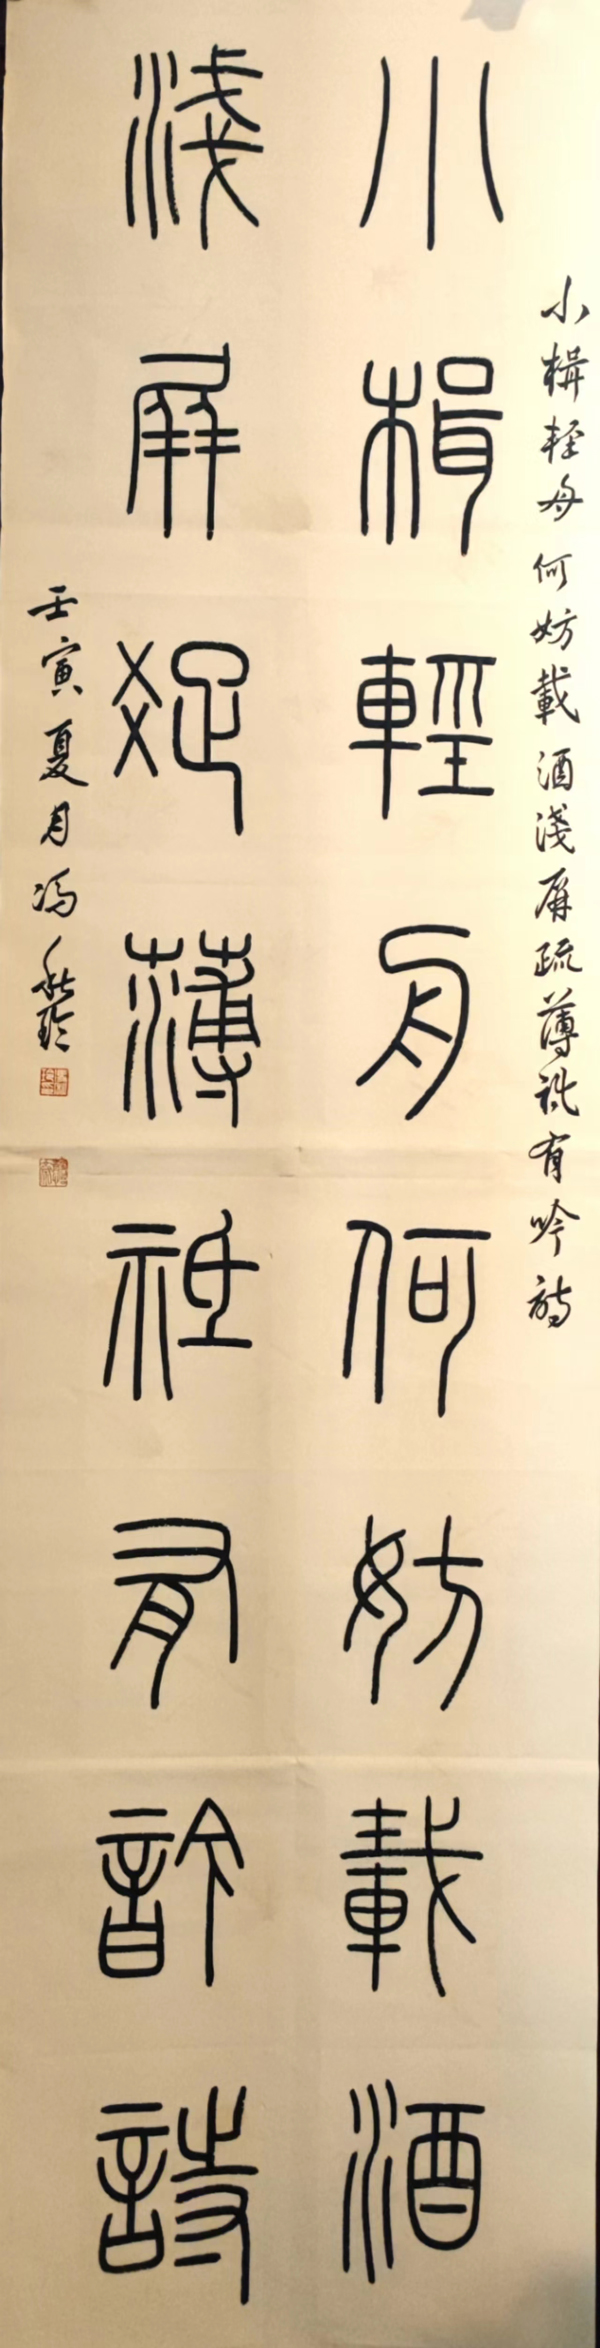 小楫輕舟何妨載酒淺屏疏薄祇有吟詩
小楫輕舟何妨載酒
淺屏疏薄祇有吟詩
壬寅夏月冯秋玲